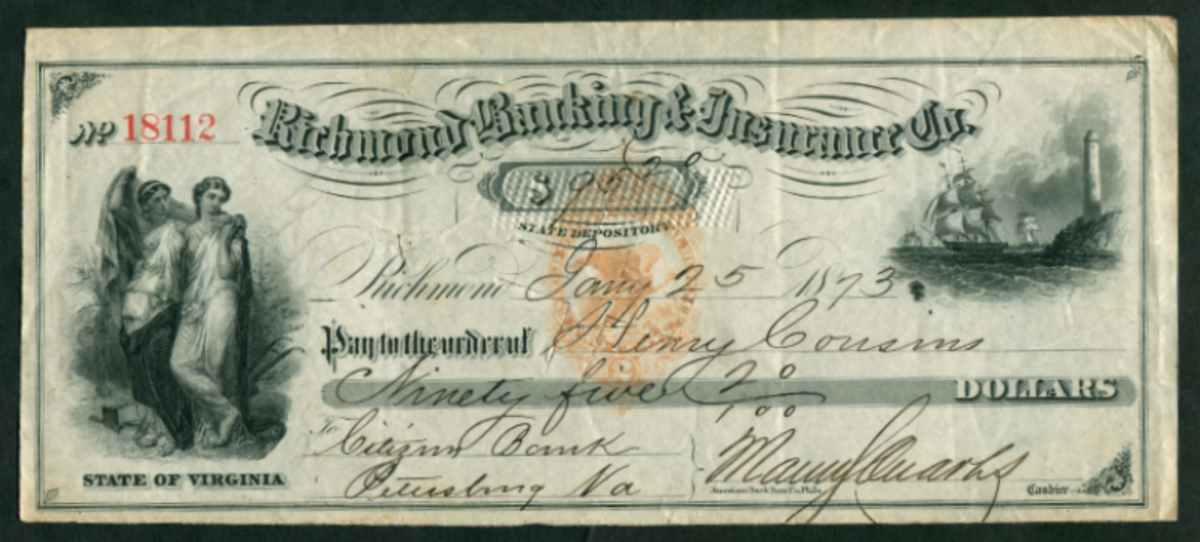 No 18112
Richmond Banking & Insurance Co.
$ 95 20
STATE DEPOSITORY
Richmond Jany 25 1873
Pay to the order of Henry Cousins
Ninety five 20/100 DOLLARS
To Citizens Bank
Petersburg Va
STATE OF VIRGINIA
American Bank Note Co. Phila.
Cashier